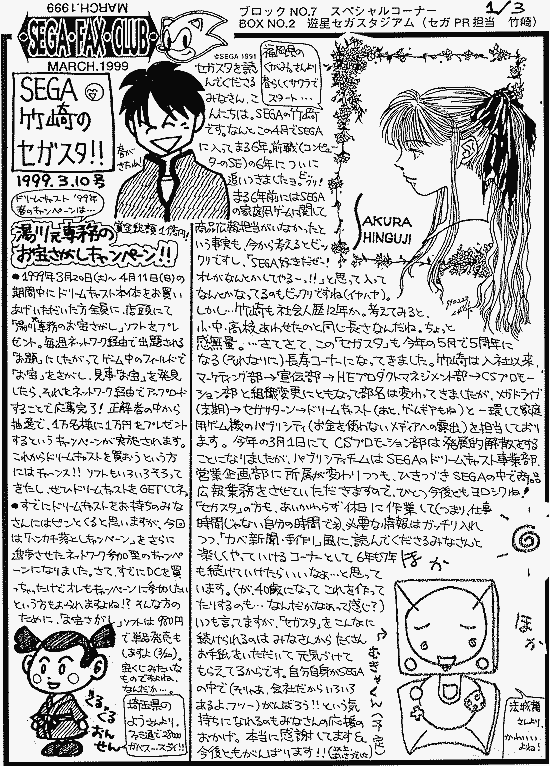 MARCH.1999
SEGA・FAX・CLUB
MARCH.1999
ブロックNO.7 スペシャルコーナー 1/3
BOX NO.2 遊星セガスタジアム（セガPR担当 竹崎）
©SEGA 1991
SEGA
竹崎の
セガスタ!!
1999.3.10号
ドリームキャスト'99年
春のキャンペーンは…
賞金総額1億円!
湯川元専務の
お宝さがしキャンペーン!!
●1999年3月20日(土)〜4月11日(日)の
期間中にドリームキャスト本体をお買い
あげいただいた方全員に、店頭にて
「湯川元専務のお宝さがし」ソフトをプレ
ゼント。毎週ネットワーク経由で出題される
「お題」にしたがってゲーム中のフィールドで
「お宝」をさがし、見事「お宝」を発見
したら、それをネットワーク経由でアップロード
することで応募完了! 正解者の中から
抽選で、1万名様に1万円をプレゼント
するというキャンペーンが実施されます。
これからドリームキャストを買おうという方
にはチャンス!! ソフトもいろいろそろって
きたし、ぜひドリームキャストをGETしてネ。
●すでにドリームキャストをお持ちのみな
さんにはゼンとくると思いますが、今回
は「ワンカチ落としキャンペーン」をさらに
進歩させたネットワーク参加型のキャンペ
ーンになりました。さて、すでにDCを買
っちゃったけどオレもキャンペーンに参加したい
という方もおられますよね!? そんな方の
ために、「お宝さがし」ソフトは980円
で単品発売も
しますよ(3/20)。
ぐるぐる
おんせん
埼玉県の
セガスタを読ん
でくださる
みなさん、こ
んにちは。SEGAの竹崎
です。なんとこの4月でSEGA
に入ってまる6年。前職(コンピュー
タのSE)の6年についに
追いつきましたヨ。ビックリ!
まる6年前にはSEGA
の家庭用ゲームに関して
商品広報担当がいなかったと
いう事実も、今から考えるとビッ
クリですし、「SEGA好きだぜー!
オレがなんとかしてやる〜!!」と思って入って
なんとかなってるのもビックリですね(イヤハヤ)。
しかし…竹崎も社会人歴12年か。考えてみると、
小・中・高校あわせたのと同じ長さなんだね。ちょっと
感無量。…さてさて、この「セガスタ」も今年の5月で5周年に
なる(それなりに)長寿コーナーになってきました。竹崎は入社以来、
マーケティング部→宣伝部→HEプロダクトマネジメント部→CSプロモー
ション部と組織変更にともなって部名は変わってきましたが、メガドライブ
(末期)→セガサターン→ドリームキャスト(あと、ゲームギアもね)と一環して家庭
用ゲーム機のパブリシティ(お金を使わないメディアへの露出)を担当してお
ります。今年の3月1日にてCSプロモーション部は発展的解散をする
ことになりましたが、パブリシティチームはSEGAのドリームキャスト事業部、
営業企画部に所属が変わりつつも、ひきつづきSEGAの中で商品
広報業務をさせていただきますので、ひとつ今後ともヨロシクね!
「セガスタ」の方も、あいかわらず休日に作業して(つまり、仕事
時間じゃない自分の時間で)、必要な情報はガッチリ入れ
つつ、「カベ新聞・手作り風に」読んでくださるみなさんと
楽しくやっていけるコーナーとして6年も7年
も続けていけたらいいなぁ…と思って
います。(が、40歳になってこれを作って
たりするのも…なんだかなあって感じ?)
いつも言ってますが、「セガスタ」をこんなに
続けられるのはみなさんからたくさん
お手紙をいただいて元気づけて
もらえてるからです。自分自身がSEGA
の中で(そりゃぁ、会社だからいろいろ
あるよ、フッー)がんばろう!!という気
持ちになれるのもみなさんの応援の
おかげ。本当に感謝してます&
今後ともがんばります!!
福岡県の
SAKURA
SHINGUJI
ほか
ほか
茨城県
かわいい
よね!